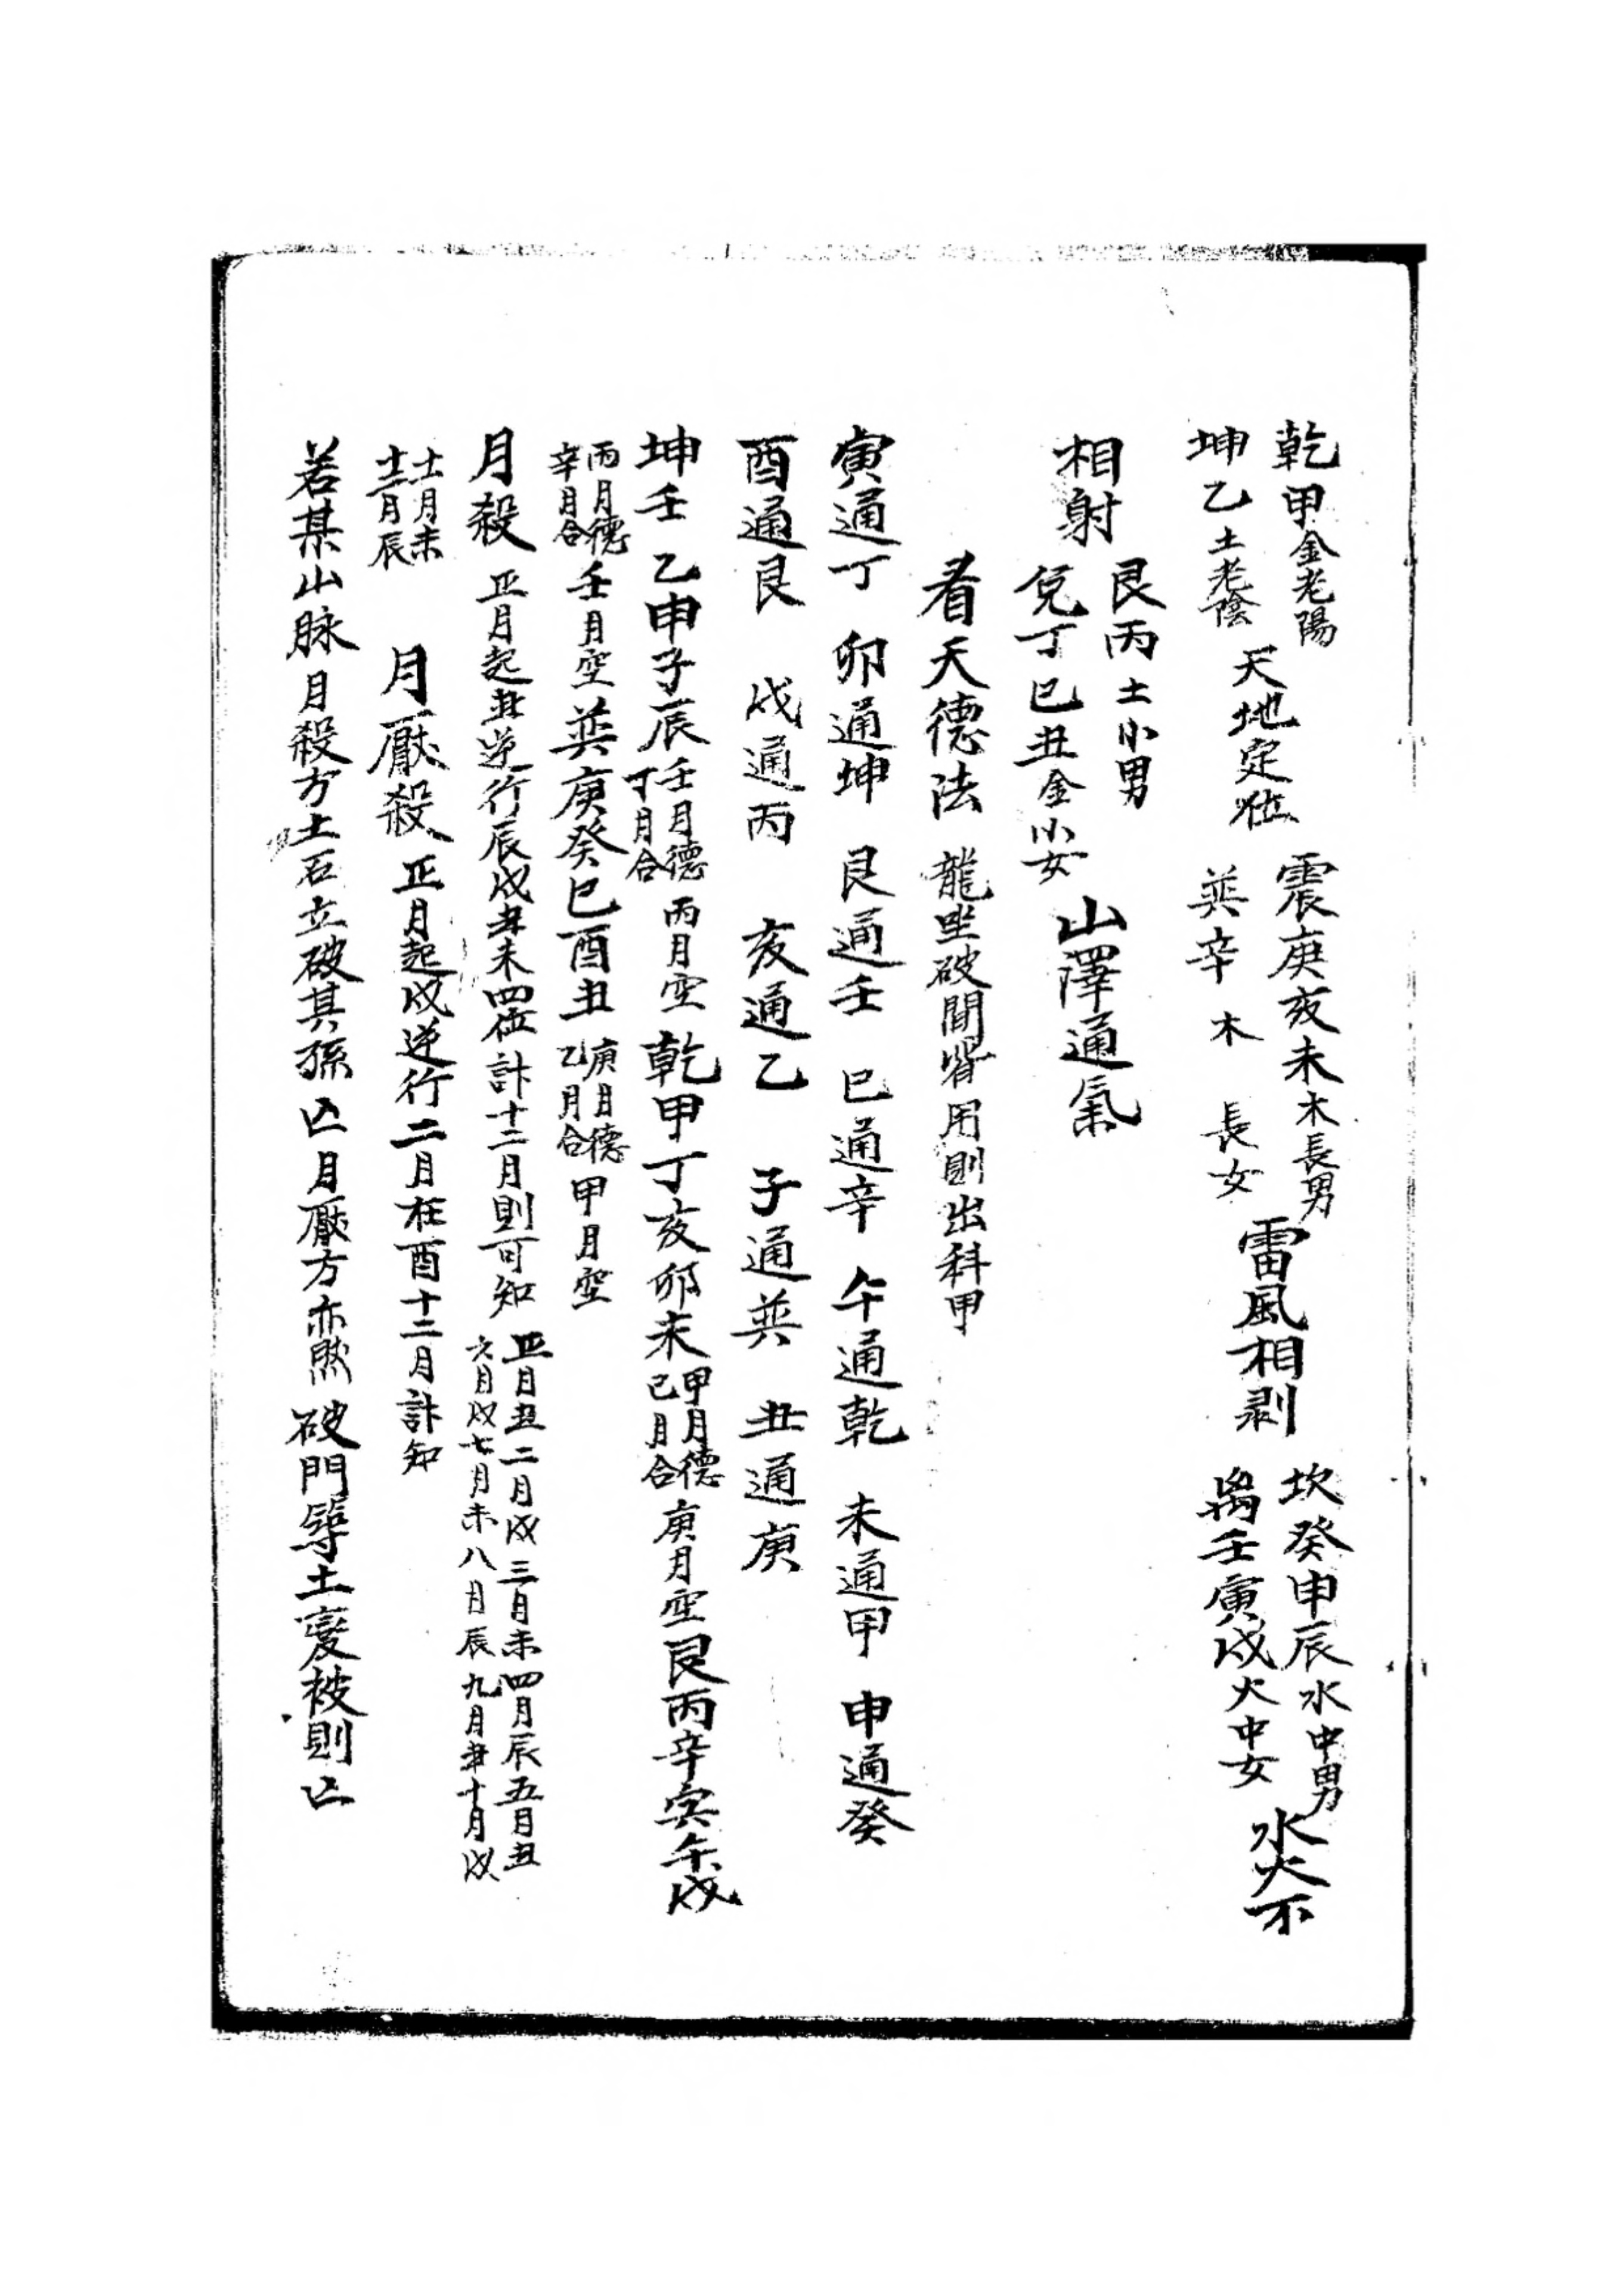 乾甲金老陽
坤乙土老陰
天地定位
震庚亥未木長男
巽辛木長女
雷風相剥
坎癸申辰水中男
离壬寅戌火中女
水火不
相射
艮丙土小男
兌丁巳丑金小女
山澤通氣
看天德法 龍坐破開皆用則出科甲
寅通丁 卯通坤 艮通壬 巳通辛 午通乾 未通甲 申通癸
酉通艮 戌通丙 亥通乙 子通巽 丑通庚
坤壬乙申子辰
壬月德
丁月合
丙月空
乾甲丁亥卯未
甲月德
己月合
庚月空
艮丙辛寅午戌
丙月德
辛月合
壬月空
巽庚癸巳酉丑
庚月德
乙月合
甲月空
月殺 正月起丑逆行辰戌丑未四位計十二月則可知
正月丑二月戌三月未四月辰五月丑
六月戌七月未八月辰九月丑十月戌
十一月未
十二月辰
月厭殺 正月起戌逆行二月在酉十二月計知
若某山脉月殺方土石立破其孫亡月厭方亦然 破門等土变被則亡